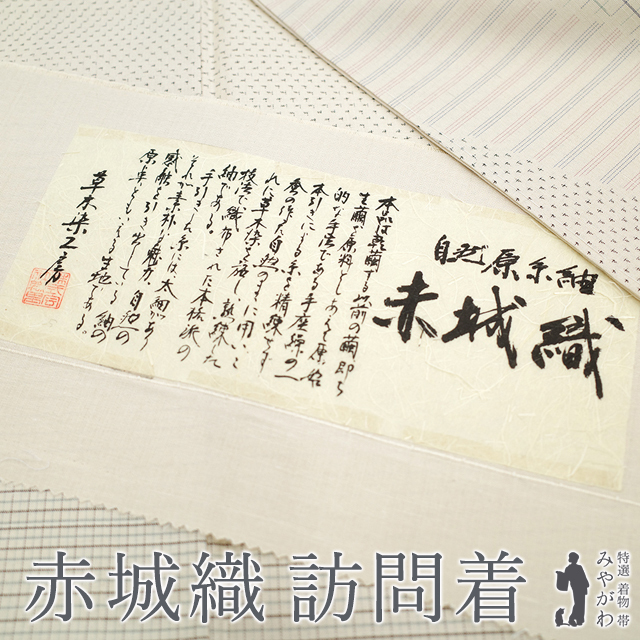 自然原糸紬
赤城織
本品は乾繭する以前の繭即ち
生繭が原料とし原始
的な手法である手座繰の一
本引きによる糸を精練せず
蚕の作た自然のままに用いこ
れに草木染を施し熟練した
技法で織布された本格派の
紬で
手引きした糸には太細があり
それが素朴な魅力、自然の
感触を引き出している紬の
原点ともいえる生地である。
草木染工房
赤城織 訪問着
特選 着物 帯
みやがわ